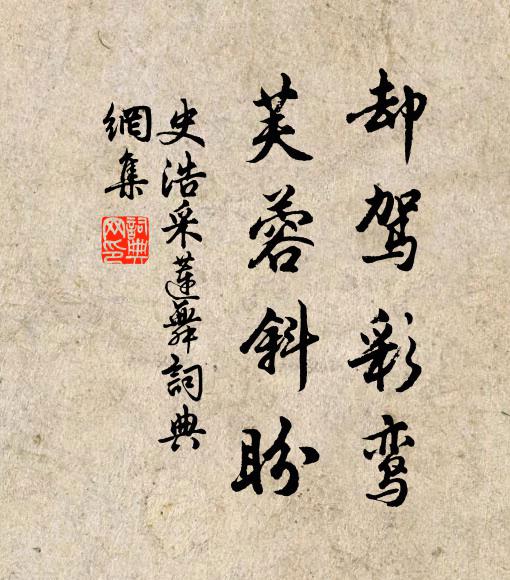 却驾彩鸾
芙蓉斜盼
史浩采蓮舞詞典
網集
詞典网印